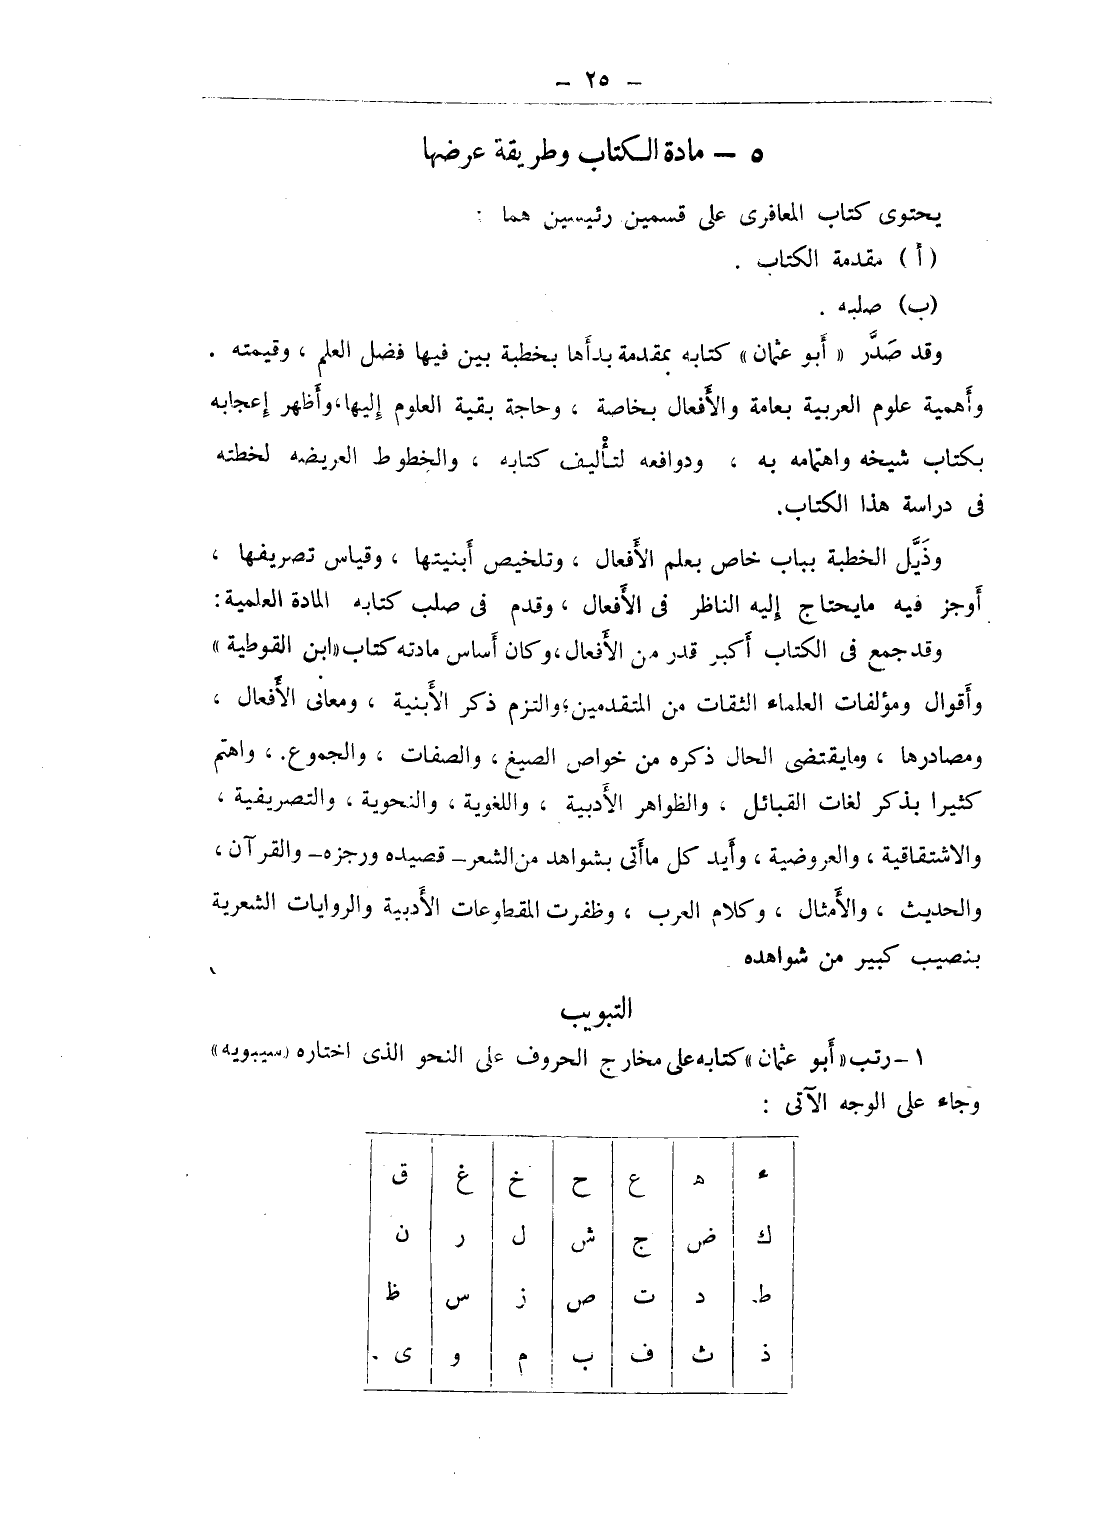 – ٢٥ –
٥ – مادة الكتاب وطريقة عرضها
يحتوى كتاب المعافرى على قسمين رئيسين هما :
( أ ) مقدمة الكتاب .
(ب) صلبه .
وقد صَدَّر « أَبو عثمان» كتابه بمقدمة بدأَها بخطبة بين فيها فضل العلم ، وقيمته .
وأَهمية علوم العربية بعامة والأَفعال بخاصة ، وحاجة بقية العلوم إليها،وأَظهر إعجابه
بكتاب شيخه واهتمامه به ، ودوافعه لتأْليف كتابه ، والخطوط العريضه لخطته
فى دراسة هذا الكتاب.
وذَيَّل الخطبة بباب خاص بعلم الأَفعال ، وتلخيص أَبنيتها ، وقياس تصريفها ،
أَوجز فيه مايحتاج إليه الناظر فى الأَفعال ، وقدم فى صلب كتابه المادة العلمية:
وقد جمع فى الكتاب أَكبر قدر من الأَفعال،وكان أَساس مادته كتاب«ابن القوطية »
وأَقوال ومؤلفات العلماء الثقات من المتقدمين؛والتزم ذكر الأَبنية ، ومعانى الأَفعال ،
ومصادرها ، ومايقتضى الحال ذكره من خواص الصيغ ، والصفات ، والجموع. ، واهتم
كثيرا بذكر لغات القبائل ، والظواهر الأَدبية ، واللغوية ، والنحوية ، والتصريفية ،
والاشتقاقية ، والعروضية ، وأَيد كل ماأَتى بشواهد من الشعر – قصيده ورجزه – والقرآن ،
والحديث ، والأَمثال ، وكلام العرب ، وظفرت المقطوعات الأَدبية والروايات الشعرية
بنصيب كبير من شواهده
التبويب
١ – رتب «أَبو عثمان» كتابه على مخارج الحروف على النحو الذى اختاره (سيبويه»
وجاء على الوجه الآتى :
ء ه ع ح خ غ ق
ك ض ج ش ل ر ن
ط د ت ص ز س ظ
ذ ث ف ب م و ى .